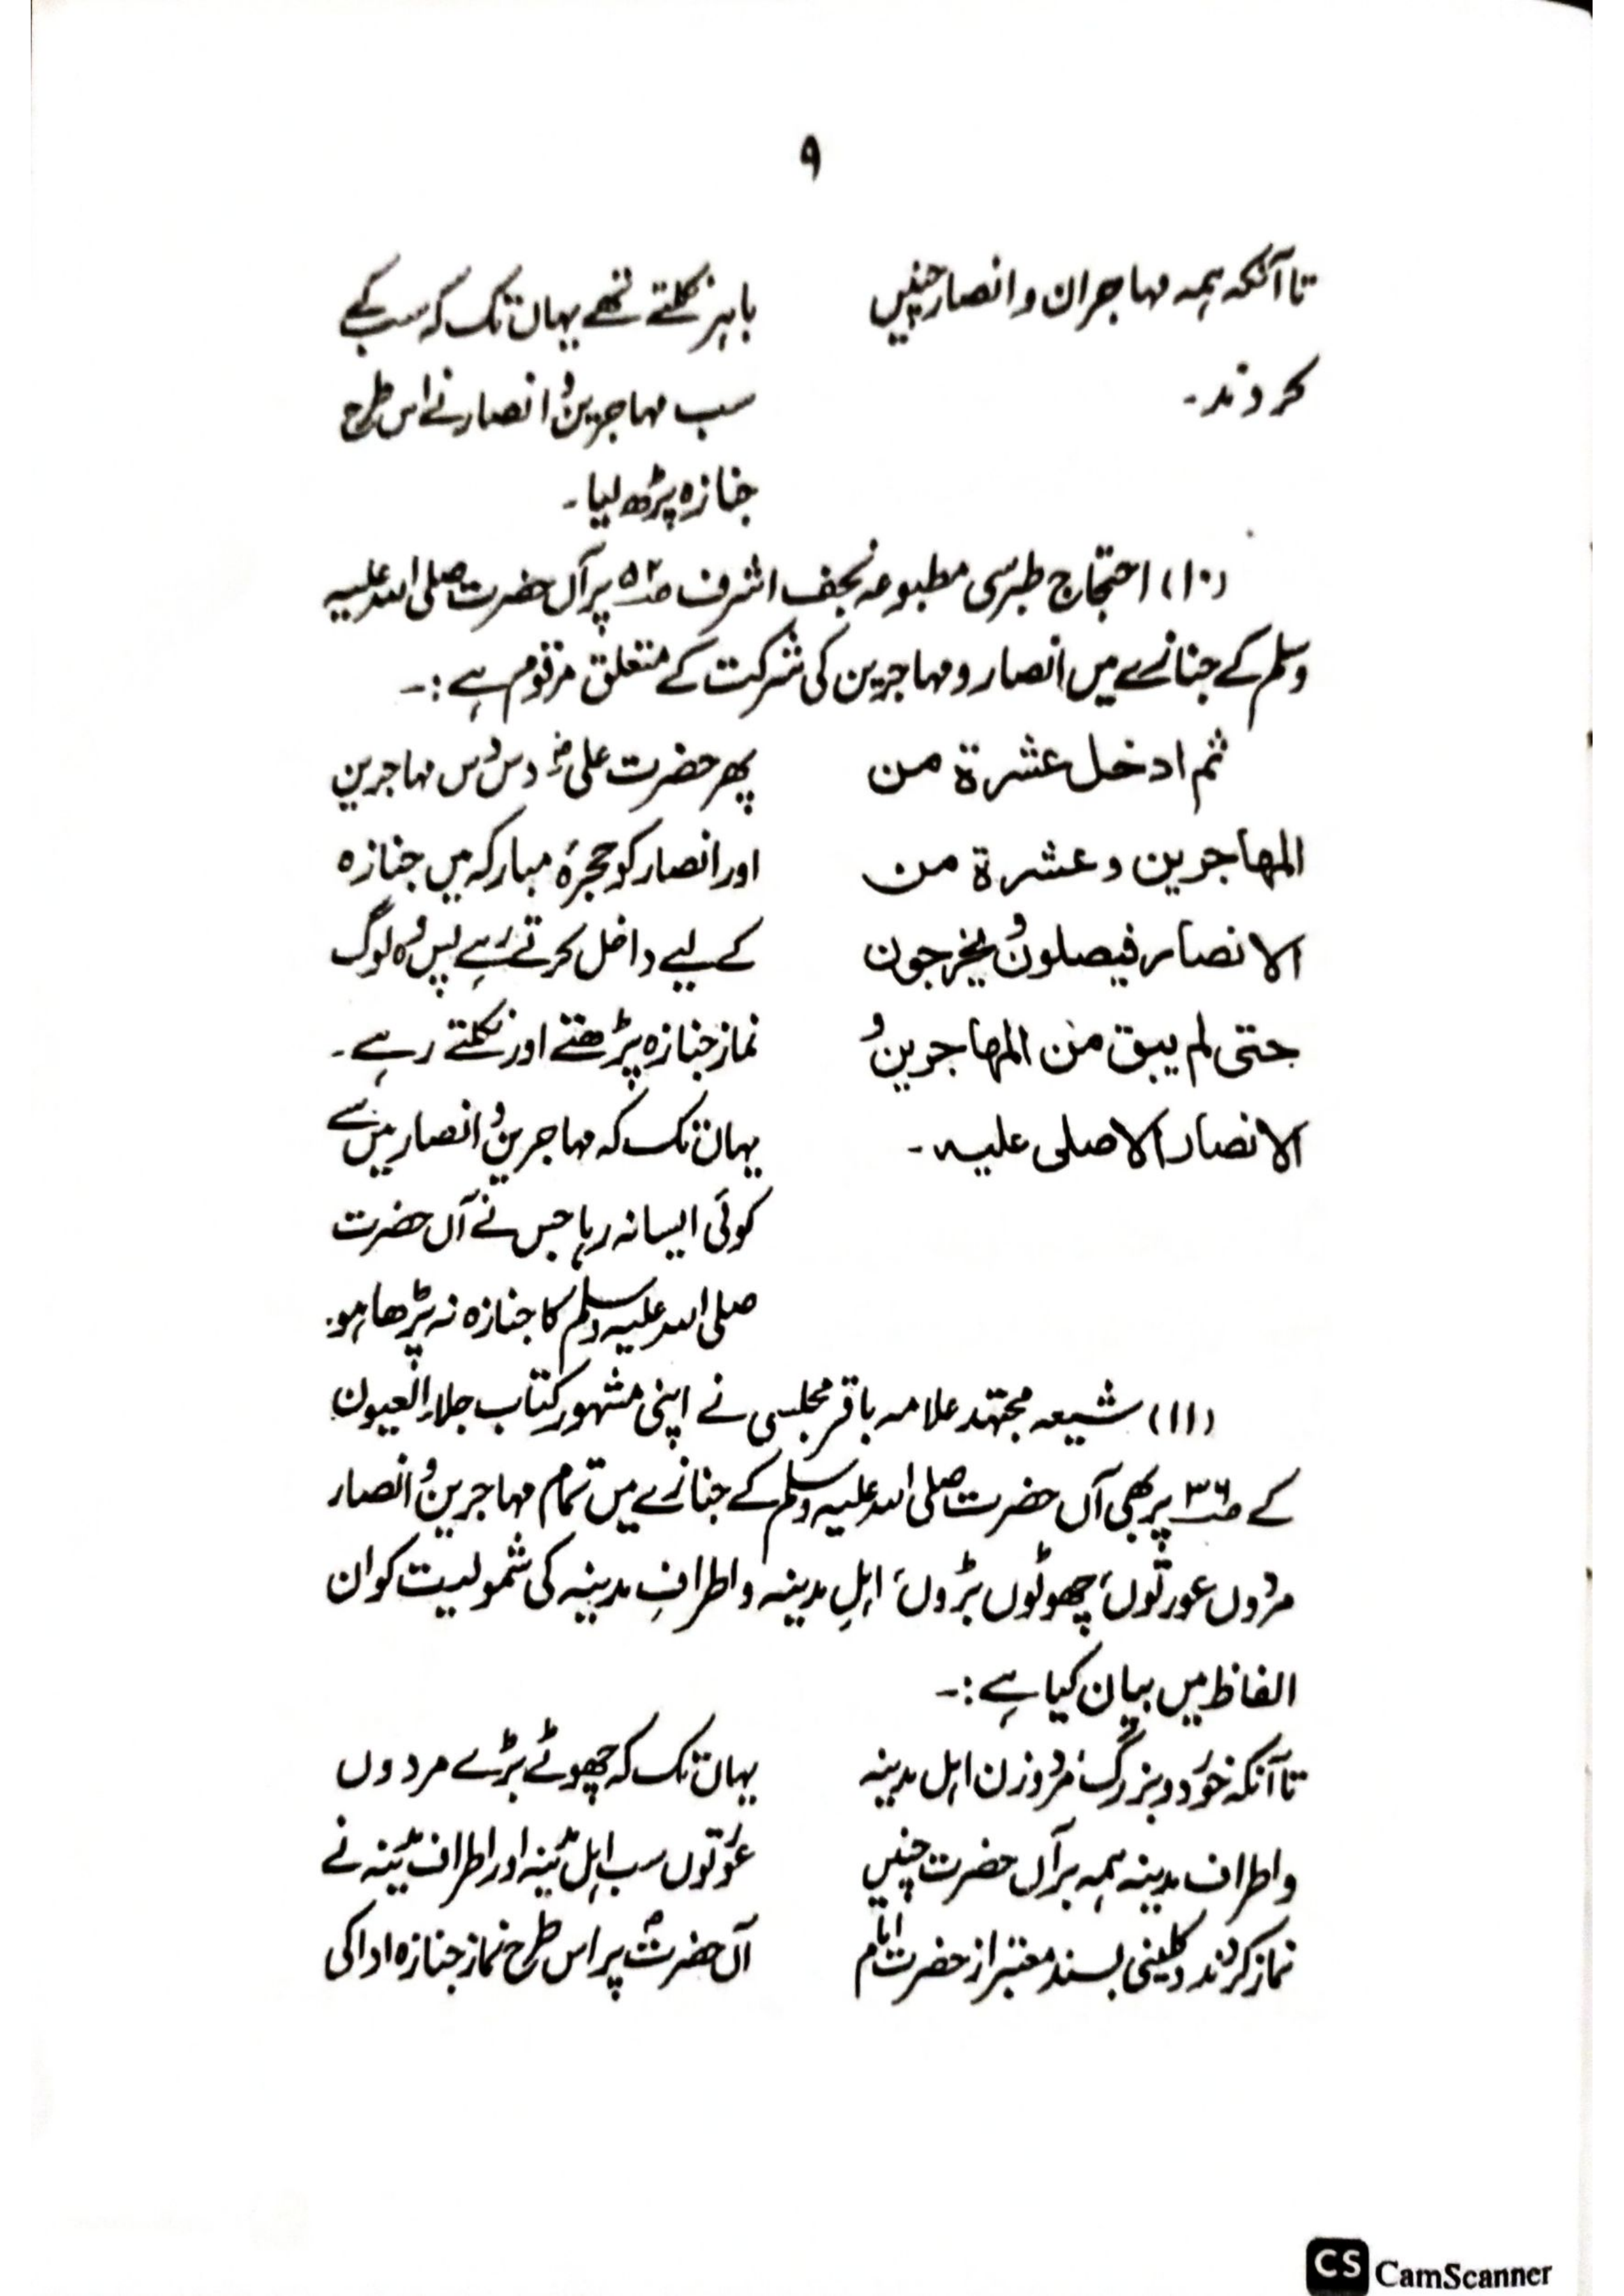 ۹
تا آنکہ ہمہ مہاجران و انصار چنیں
کردند۔
باہر نکلتے تھے یہاں تک کہ سب کے
سب مہاجرین و انصار نے اس طرح
جنازہ پڑھ لیا۔
(۱۰) احتجاج طبرسی مطبوعہ نجف اشرف صـ۵۲ پر آں حضرت صلی اللہ علیہ
وسلم کے جنازے میں انصار و مہاجرین کی شرکت کے متعلق مرقوم ہے :۔
ثم ادخل عشرة من
المهاجرين و عشرة من
الانصار فيصلون و يخرجون
حتى لم يبق من المهاجرين و
الانصار الا صلى عليه۔
پھر حضرت علیؓ دس دس مہاجرین
اور انصار کو حجرۂ مبارکہ میں جنازہ
کے لیے داخل کرتے رہے پس وہ لوگ
نماز جنازہ پڑھتے اور نکلتے رہے۔
یہاں تک کہ مہاجرین و انصار میں سے
کوئی ایسا نہ رہا جس نے آں حضرت
صلی اللہ علیہ وسلم کا جنازہ نہ پڑھا ہو۔
(۱۱) شیعہ مجتہد علامہ باقر مجلسی نے اپنی مشہور کتاب جلاء العیون
کے صـ۳۶ پر بھی آں حضرت صلی اللہ علیہ وسلم کے جنازے میں تمام مہاجرین و انصار
مردوں عورتوں، چھوٹوں بڑوں، اہلِ مدینہ و اطرافِ مدینہ کی شمولیت کو ان
الفاظ میں بیان کیا ہے :۔
تا آنکہ خورد و بزرگ، مرد و زن اہل مدینہ
و اطراف مدینہ ہمہ بر آں حضرت چنیں
نماز کردند و کلینی بسند معتبر از حضرت امام
یہاں تک کہ چھوٹے بڑے مردوں
عورتوں سب اہل مدینہ اور اطراف مدینہ نے
آں حضرتؐ پر اس طرح نماز جنازہ ادا کی
CS CamScanner